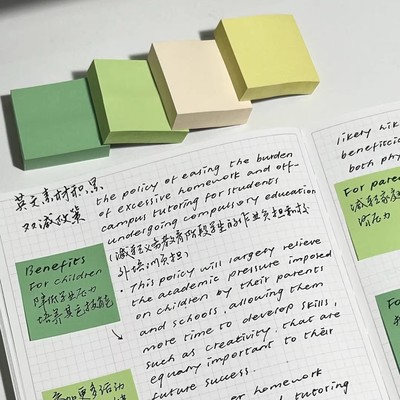 英文素材积累
双减政策
the policy of easing the burden
of excessive homework and off-
campus tutoring for students
undergoing compulsory education
(减轻义务教育阶段学生的作业负担和校
外培训负担)
• This policy will largely relieve
the academic pressure imposed
on children by their parents
and schools, allowing them
more time to develop skills,
such as creativity, that are
equally important to their
future success.
homework
tutoring
Benefits
For children
降低学业压力
培养其它技能
更多活动
likely
beneficial
both phy
For paren
减轻家庭